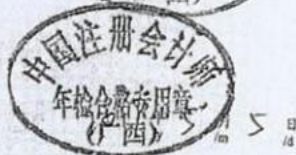 中国注册会计师
年检合格专用章
(广西)
5 月 5 日